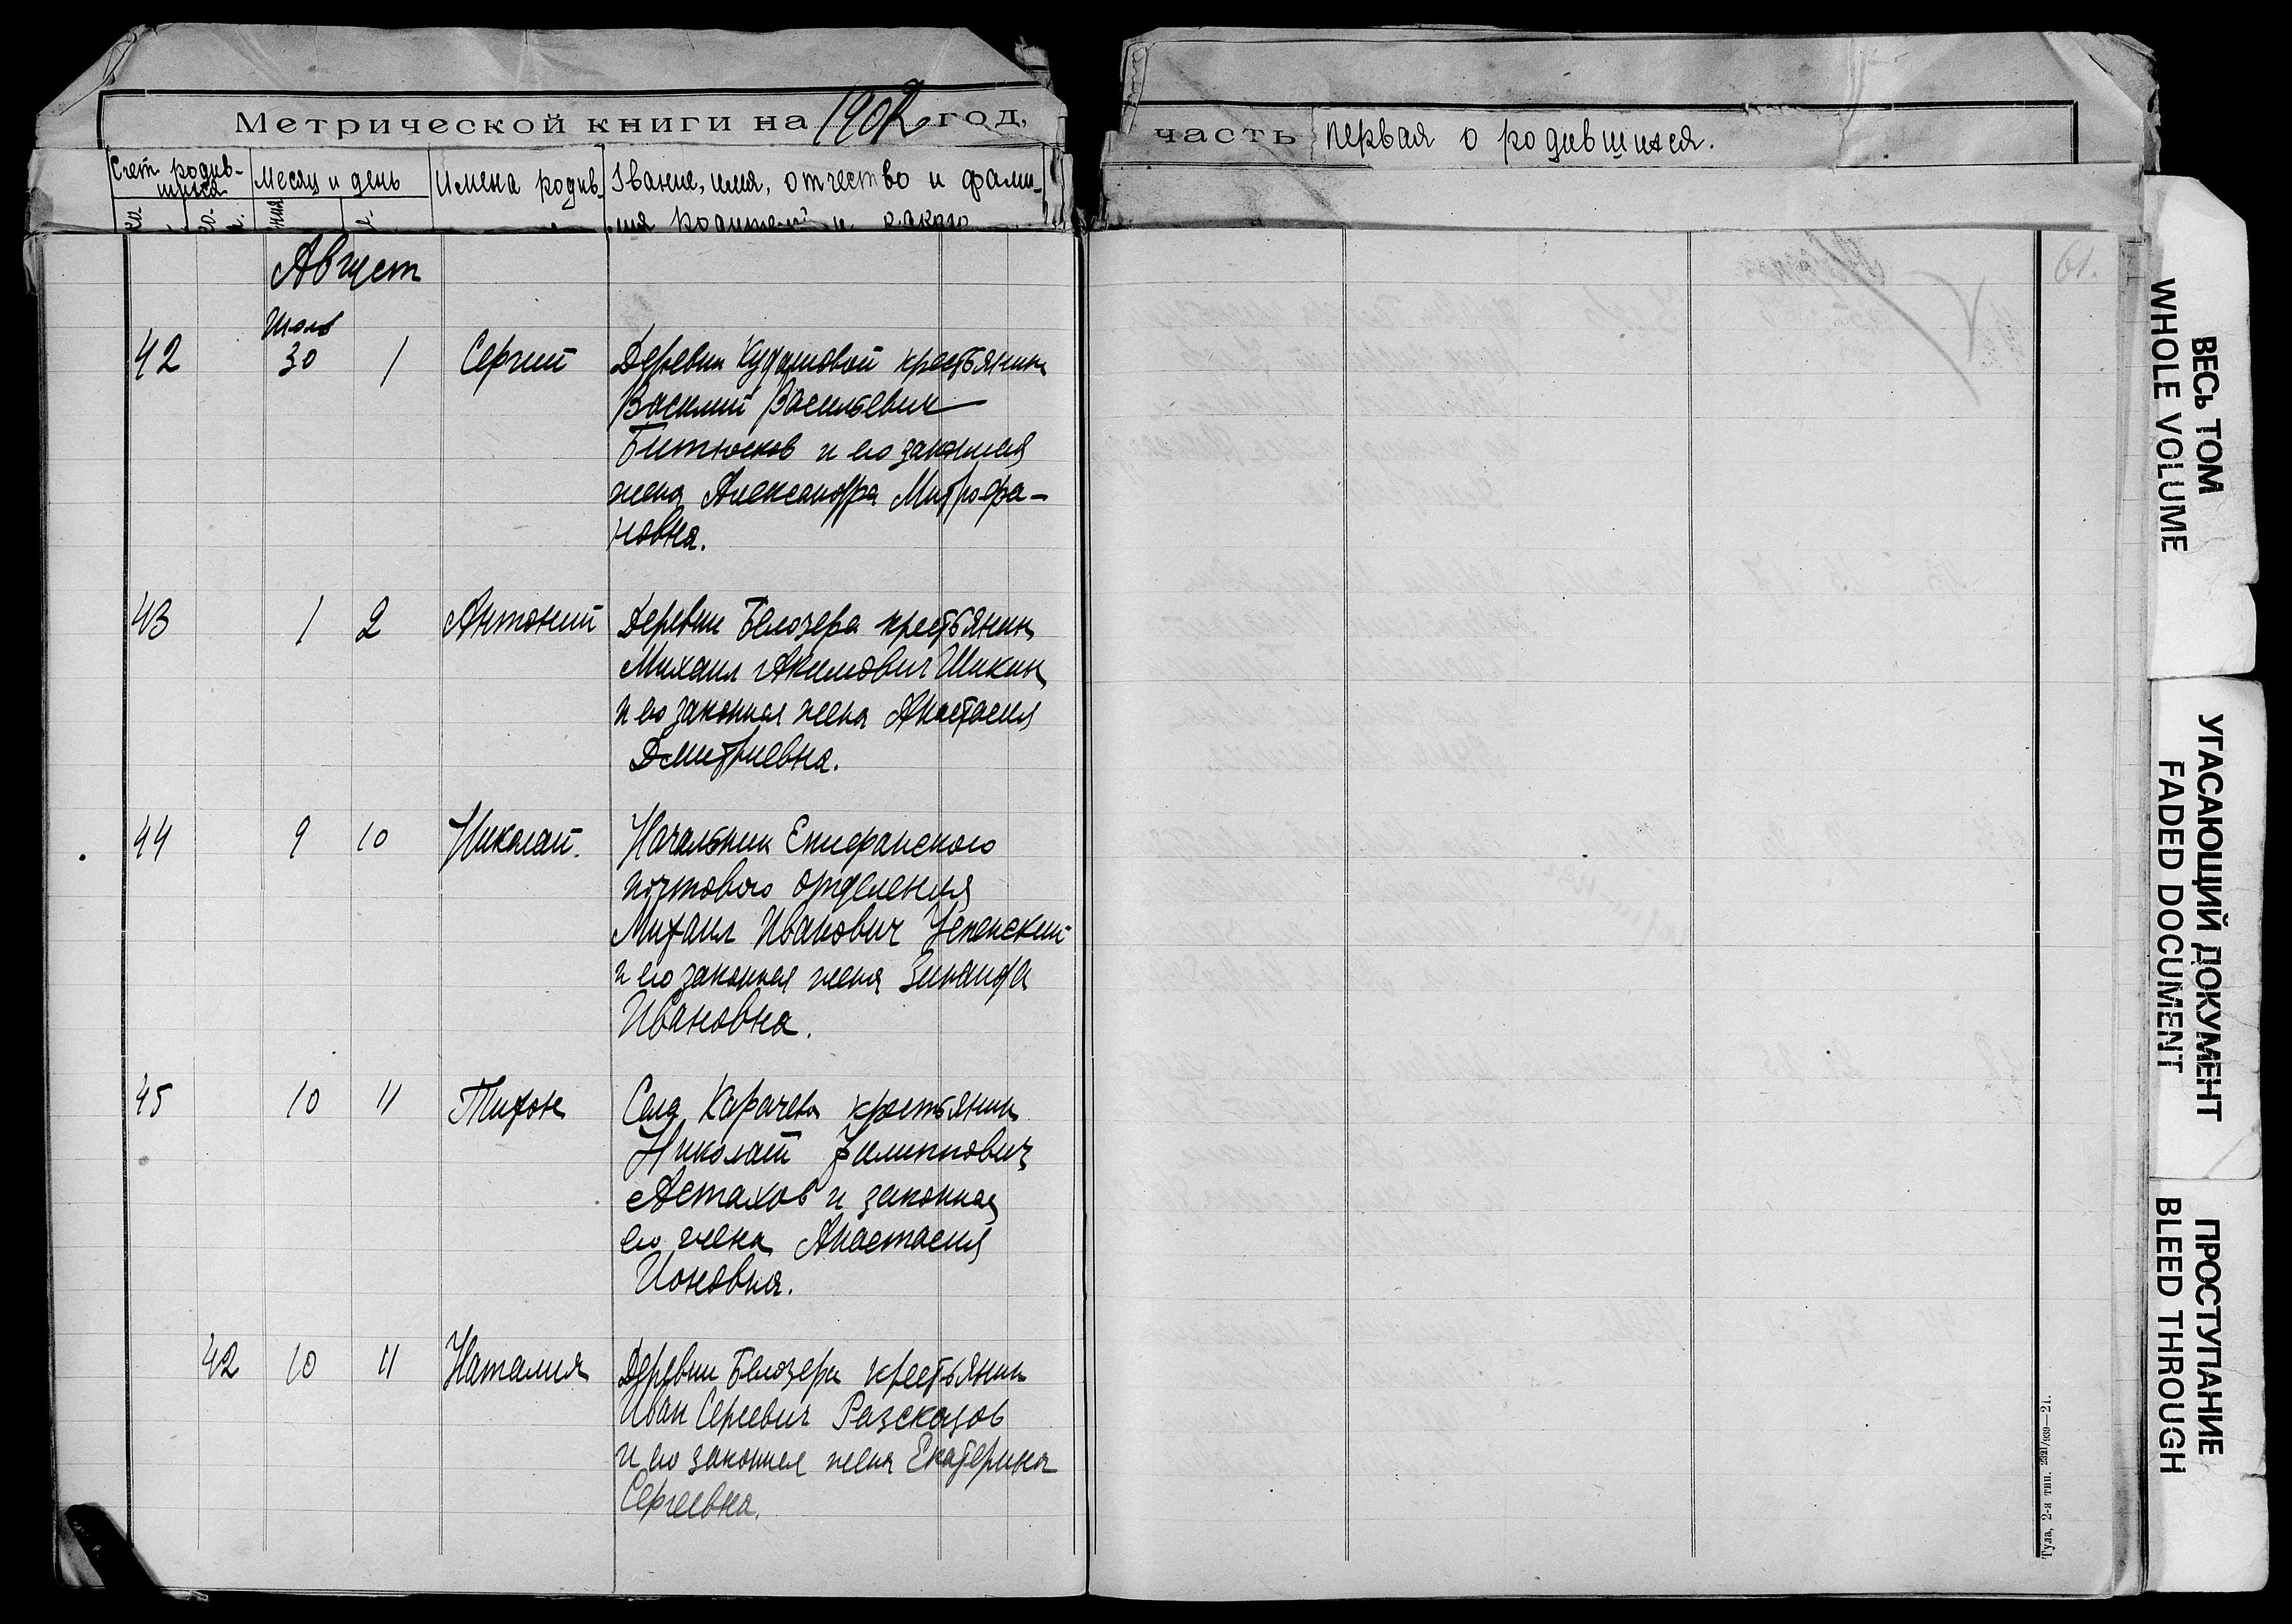 Метрической книги на 1902 год,
часть первая о родившихся.
Счет родив-
шихся
Месяц и день
Имена родив.
Звание, имя, отчество и фами-
лия родителей и какого
61.
Август
Июль
42 30 1 Сергий Деревни Кудашовой крестьянин
Василий Васильевич
Битюсков и его законная
жена Александра Митрофа-
новна.
43 1 2 Антоний Деревни Белозера крестьянин
Михаил Акимович Шикин
и его законная жена Анастасия
Дмитриевна.
44 9 10 Николай. Начальник Епифанского
почтового отделения
Михаил Иванович Успенский
и его законная жена Зинаида
Ивановна.
45 10 11 Тихон Села Карачева крестьянин
Николай Филиппович
Астахов и законная
его жена Анастасия
Ионовна.
42 10 11 Наталия Деревни Белозера крестьянин
Иван Сергеевич Разсказов
и его законная жена Екатерина
Сергеевна.
Тула, 2-я тип. 2321/939—21.
ВЕСЬ ТОМ
WHOLE VOLUME
УГАСАЮЩИЙ ДОКУМЕНТ
FADED DOCUMENT
ПРОСТУПАНИЕ
BLEED THROUGH